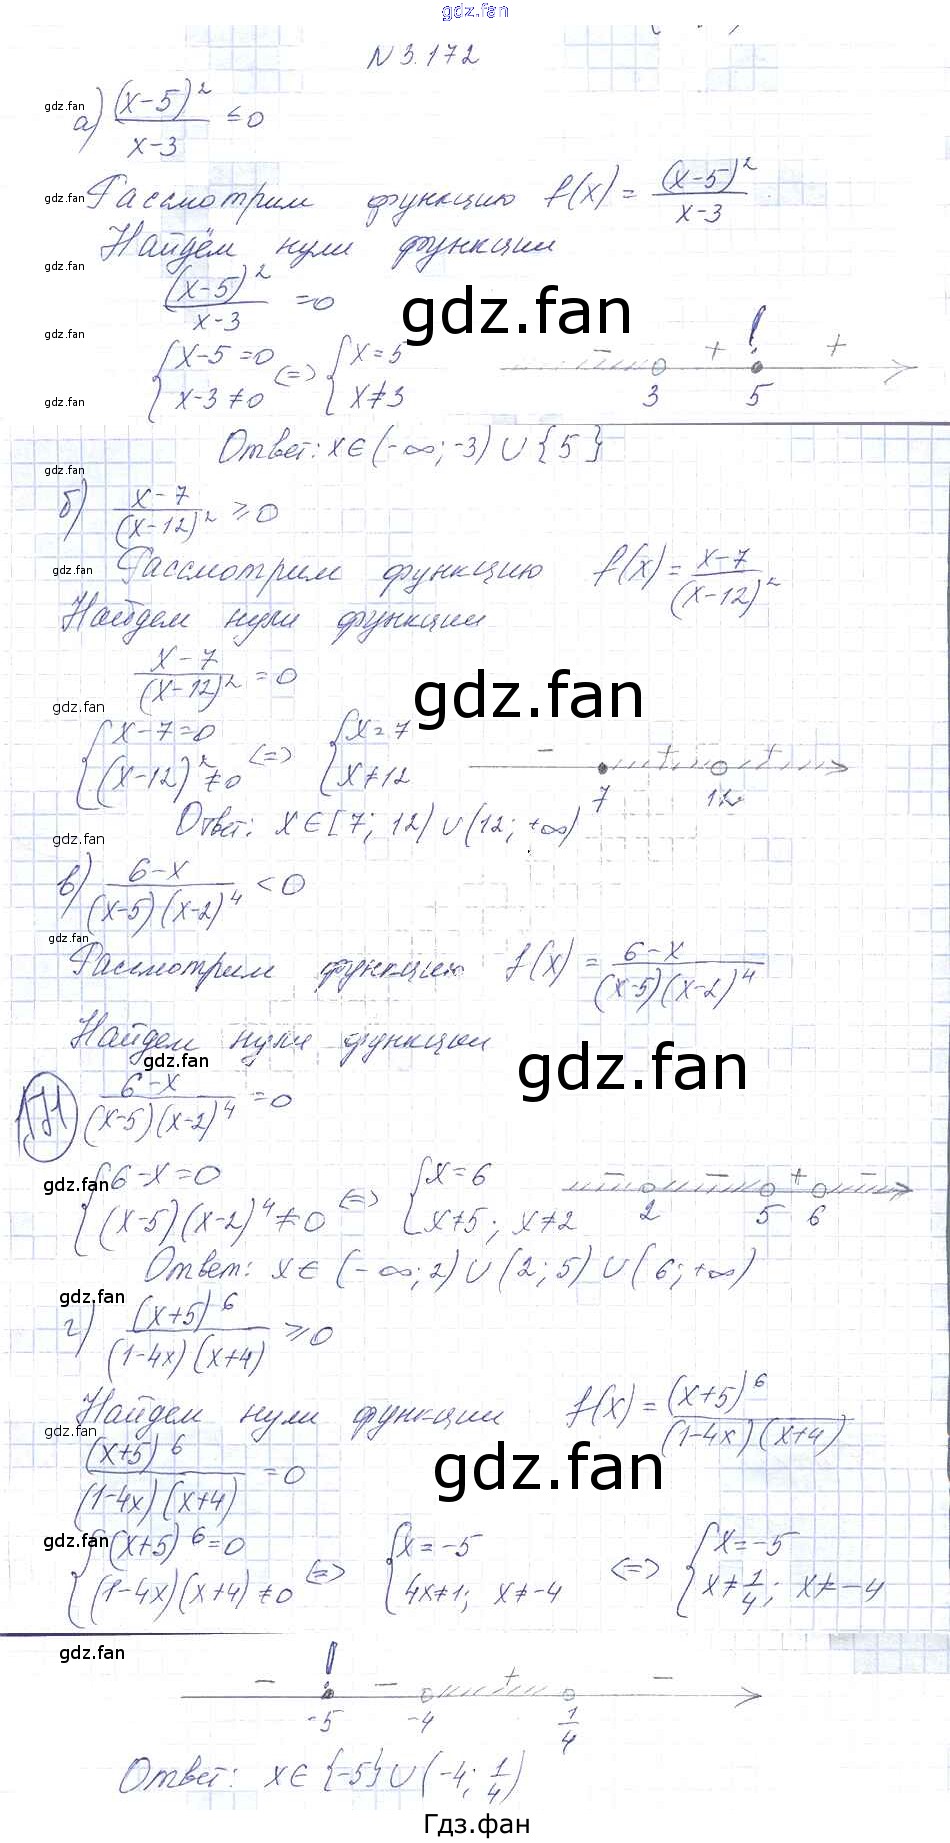 gdz.fan
N 3.172
gdz.fan
а) (x-5)²/(x-3) ≤ 0
gdz.fan
Рассмотрим функцию f(x) = (x-5)²/(x-3)
Найдём нули функции
gdz.fan
(x-5)²/(x-3) = 0
gdz.fan
gdz.fan
{x-5=0 <=> {x=5
{x-3≠0 {x≠3
- + ! +
3 5
gdz.fan
Ответ: x∈(-∞; -3) ∪ {5}
gdz.fan
б) (x-7)/(x-12)² ≥ 0
gdz.fan
Рассмотрим функцию f(x) = (x-7)/(x-12)²
Найдем нули функции
(x-7)/(x-12)² = 0
gdz.fan
gdz.fan
{x-7=0 <=> {x=7
{(x-12)²≠0 {x≠12
- + +
7 12
Ответ: x∈[7; 12) ∪ (12; +∞)
gdz.fan
в) (6-x)/((x-5)(x-2)⁴) < 0
gdz.fan
Рассмотрим функцию f(x) = (6-x)/((x-5)(x-2)⁴)
Найдем нули функции
gdz.fan
gdz.fan
171
(6-x)/((x-5)(x-2)⁴) = 0
gdz.fan
{6-x=0 <=> {x=6
{(x-5)(x-2)⁴≠0 {x≠5; x≠2
- - + -
2 5 6
Ответ: x∈(-∞; 2) ∪ (2; 5) ∪ (6; +∞)
gdz.fan
г) (x+5)⁶/((1-4x)(x+4)) ≥ 0
Найдем нули функции f(x) = (x+5)⁶/((1-4x)(x+4))
gdz.fan
(x+5)⁶/((1-4x)(x+4)) = 0
gdz.fan
gdz.fan
{(x+5)⁶=0 <=> {x=-5 <=> {x=-5
{(1-4x)(x+4)≠0 {4x≠1; x≠-4 {x≠1/4; x≠-4
gdz.fan
- ! - + -
-5 -4 1/4
Ответ: x∈{-5}∪(-4; 1/4)
Гдз.фан